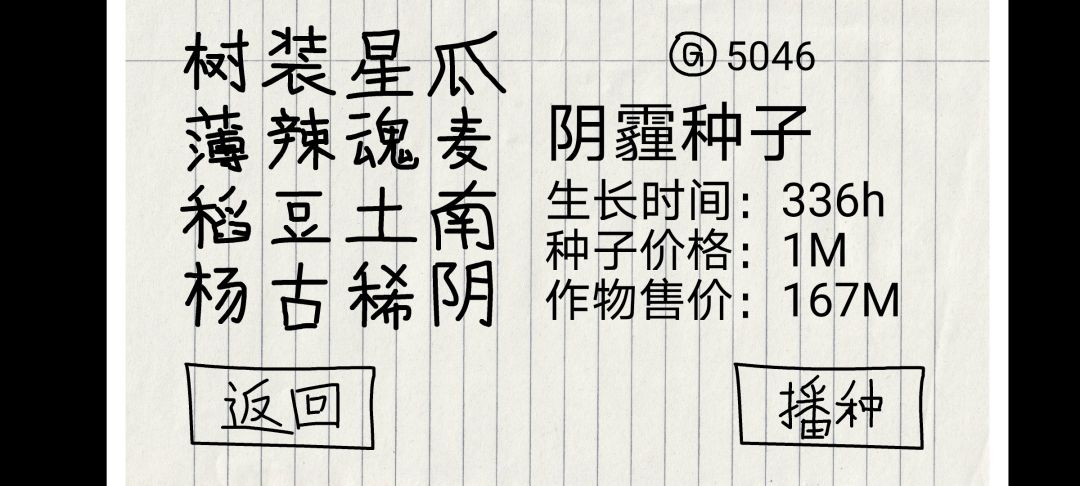 树 装 星 瓜
薄 辣 魂 麦
稻 豆 土 南
杨 古 稀 阴
G 5046
阴霾种子
生长时间：336h
种子价格：1M
作物售价：167M
返回
播种